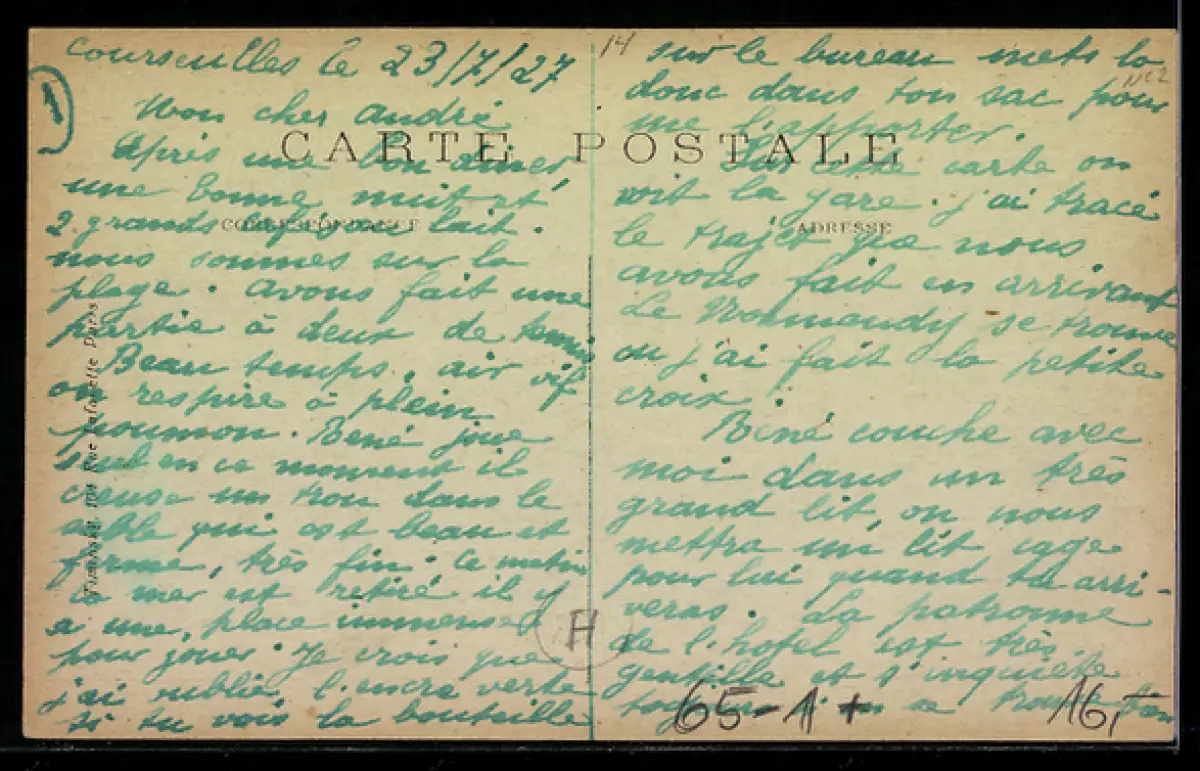 Courseulles le 23/7/27
1
Mon cher André
Après une bon diner,
une bonne nuit et
2 grands café au lait.
nous sommes sur la
plage. Avons fait une
partie à deux de tennis
Beau temps, air vif
on respire à plein
poumon. René joue
seul en ce moment il
creuse un trou dans le
sable qui est beau et
ferme, très fin. Ce matin
la mer est retiré il y
a une, place immense
pour jouer. Je crois que
j'ai oublié l'encre verte
si tu vois la bouteille
CARTE POSTALE
CORRESPONDANCE
ADRESSE
14
sur le bureau mets la
donc dans ton sac pour
me l'apporter.
Sur cette carte on
voit la gare. j'ai tracé
le trajet que nous
avons fait en arrivant
Le Normandy se trouve
ou j'ai fait la petite
croix.
René couche avec
moi dans un très
grand lit, on nous
mettra un lit cage
pour lui quand tu arri-
veras. La patronne
de l'hotel est très
gentille et s'inquiète
H
65-1+
16,-